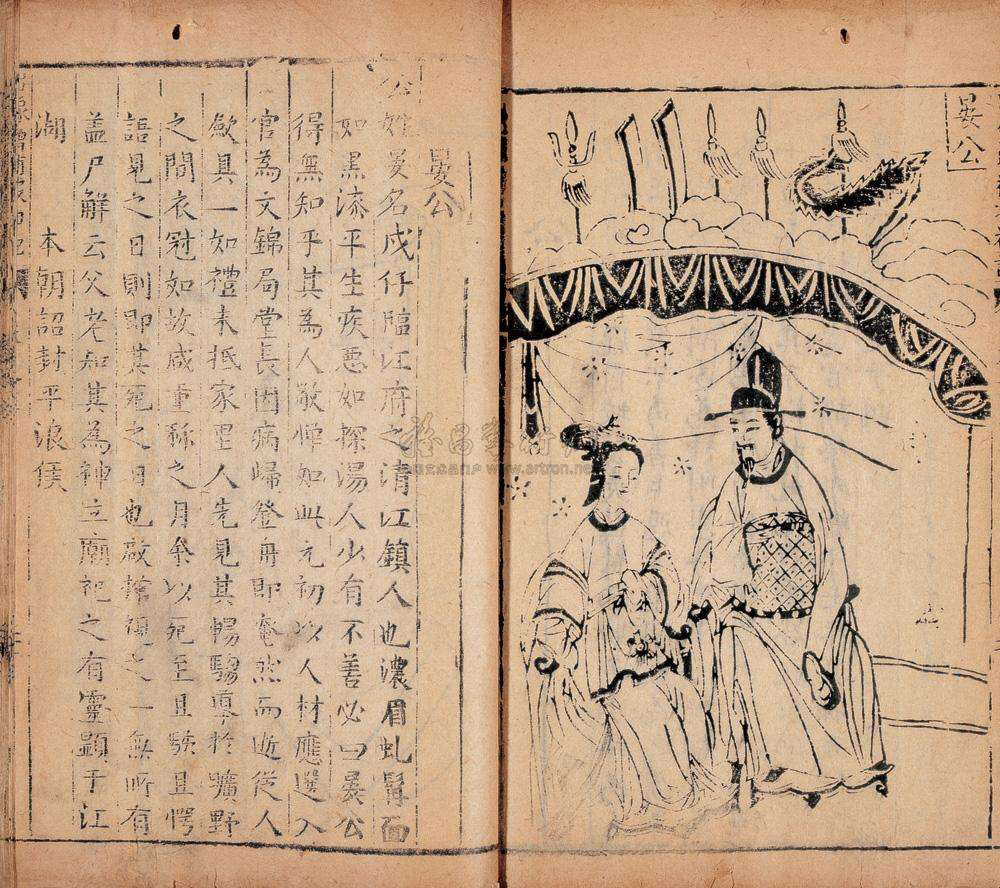 晏公
晏公
公姓晏名戍仔臨江府之清江鎮人也濃眉虬髯面
如黑漆平生疾惡如探湯人少有不善必曰晏公
得無知乎其為人敬憚如此元初以人材應選入
官為文錦局堂長因病歸登舟即奄然而逝從人
斂具一如禮未抵家里人先見其暢騶導於曠野
之間衣冠如故咸重稱之月余以死至且駭且愕
語見之日則即其死之日也啟棺視之一無所有
盖尸解云父老知其為神立廟祀之有靈顯于江
湖 本朝詔封平浪侯
像增補搜神記
www.artron.net